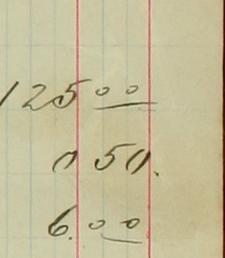 125 00
0 50.
6. 00